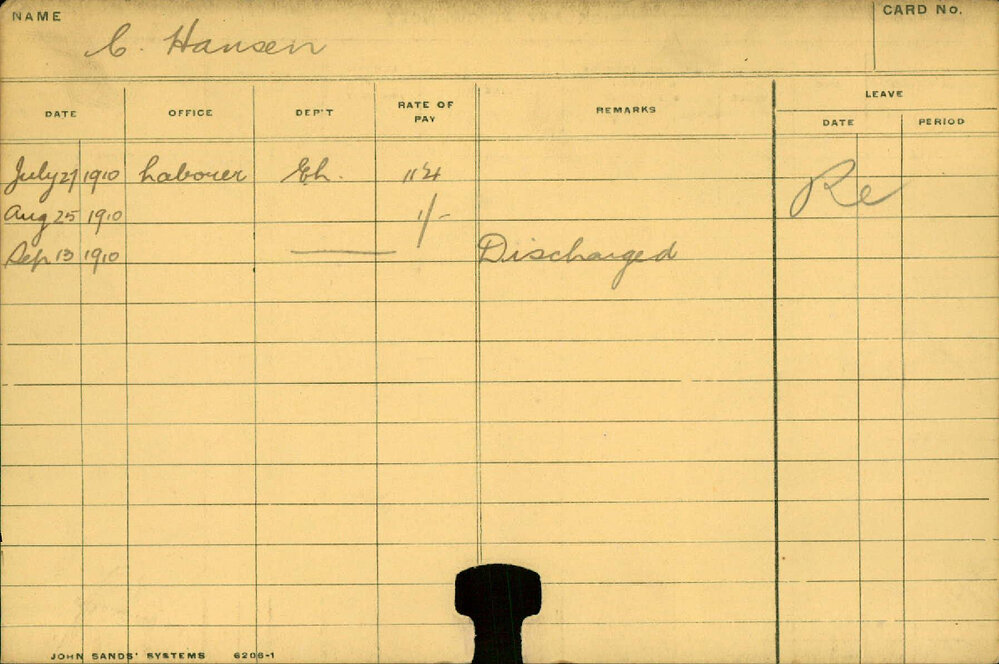 NAME
C. Hansen
CARD No.
DATE OFFICE DEP'T RATE OF PAY REMARKS LEAVE
DATE PERIOD
July 27 1910 Labourer Eh. 11¼
Aug 25 1910 1/-
Sep 13 1910 Discharged
Re
JOHN SANDS' SYSTEMS 6206-1